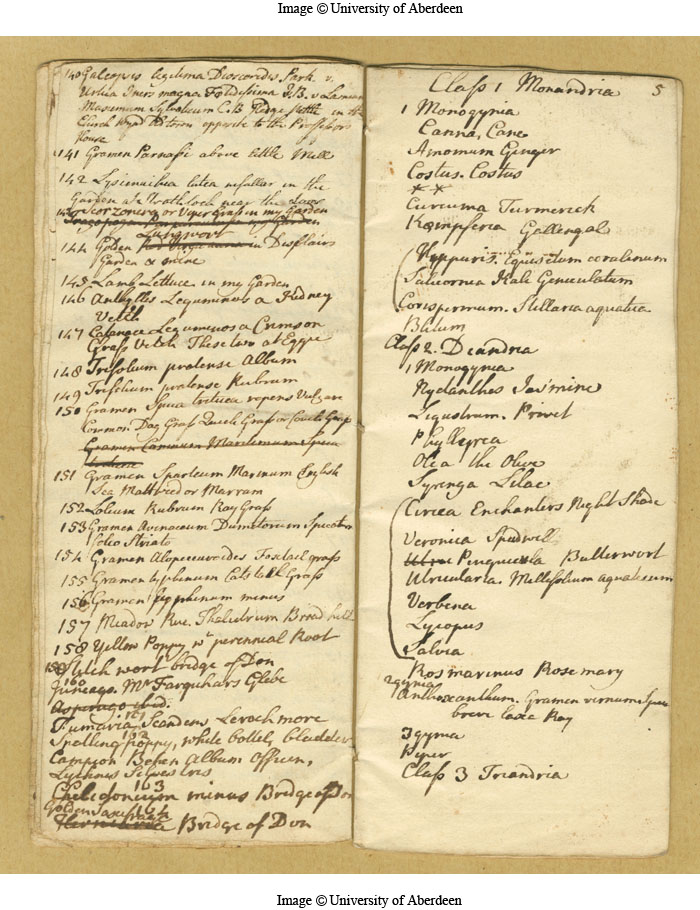 Image © University of Aberdeen
140 Galeopsis legitima Dioscoridis Park. v.
Urtica Iners magna Fœtidissima J.B. v Lamium
Maximum Sylvaticum C.B. Hedge Nettle in the
Church Wynd Old town opposite to the Professors
House
141 Gramen Parnassi above little Mill
142 Lysimachia lutea in the
Garden at Strathlock near the door
143 Scorzonera or Viper Grass in my Garden
Lungwort
144 Golden Rod Virga aurea in Disblairs
Garden & mine
145 Lamb Lettuce in my Garden
146 Anthyllis Leguminosa Kidney
Vetch
147 Catanance Leguminosa Crimson
Grass Vetch These two at Eggie
148 Trifolium pratense Album
149 Trifolium pratense Rubrum
150 Gramen Spica triticea repens Vulgare
Common Dog Grass Quick Grass or Couch Grass
Gramen Caninum Maritimum Spica
triticea
151 Gramen Sparteum Marinum English
Sea Mattweed or Marram
152 Lolium Rubrum Ray Grass
153 Gramen Avenaceum Dumetorum Spicatum
Folio Striato
154 Gramen Alopecuroides Foxtail grass
155 Gramen typhinum Cats tail Grass
156 Gramen typhinum minus
157 Meadow Rue. Thalictrum Broad hill
158 Yellow Poppy wt perennial Root
159 Stich wort bridge of Don
160
Juncago. Mr Farquhars Glebe
Asperago ibid.
161
Fumaria Scandens Lerochmore
162
Spatling poppy, white bottel, bladder
Campion Behen Album Officin,
Lychnis Silvestris
163
Chelidonium minus Bridge of Don
164
Golden Saxifrage
Bridge of Don
5
Class 1 Monandria
1 Monogynia
Canna, Cane
Amomum Ginger
Costus. Costus
* *
Curcuma Turmerick
Kæmpferia Gallengal
Hyppuris. Equisetum corallinum
Salicornia Kali Geniculatum
Corispermum. Stellaria aquatica
Blitum
Class 2. Diandria
1 Monogynia
Nyctanthes Jasmine
Ligustrum. Privet
Phyllyrea
Olea the Olive
Syringa Lilac
Circea Enchanters Night Shade
Veronica Speedwell
Utric Pinguicula Butterwort
Utricularia. Millefolium aquaticum
Verbena
Lycopus
Salvia
Rosmarinus Rosemary
2gynia
Anthoxanthum. Gramen vernum Spica
brevi laxa Ray
3gynia
Piper
Class 3 Triandria
Image © University of Aberdeen